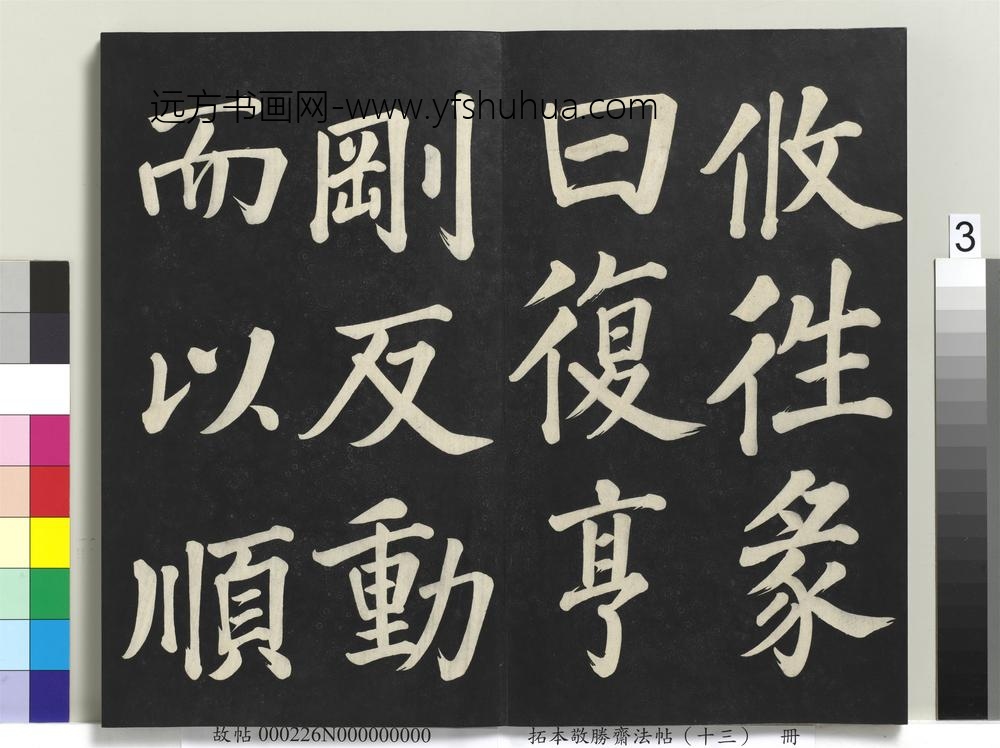 远方书画网-www.yfshuhua.com
攸徃彖
曰復亨
剛反動
而以順
3
故帖 000226N000000000
拓本敬勝齋法帖（十三） 冊